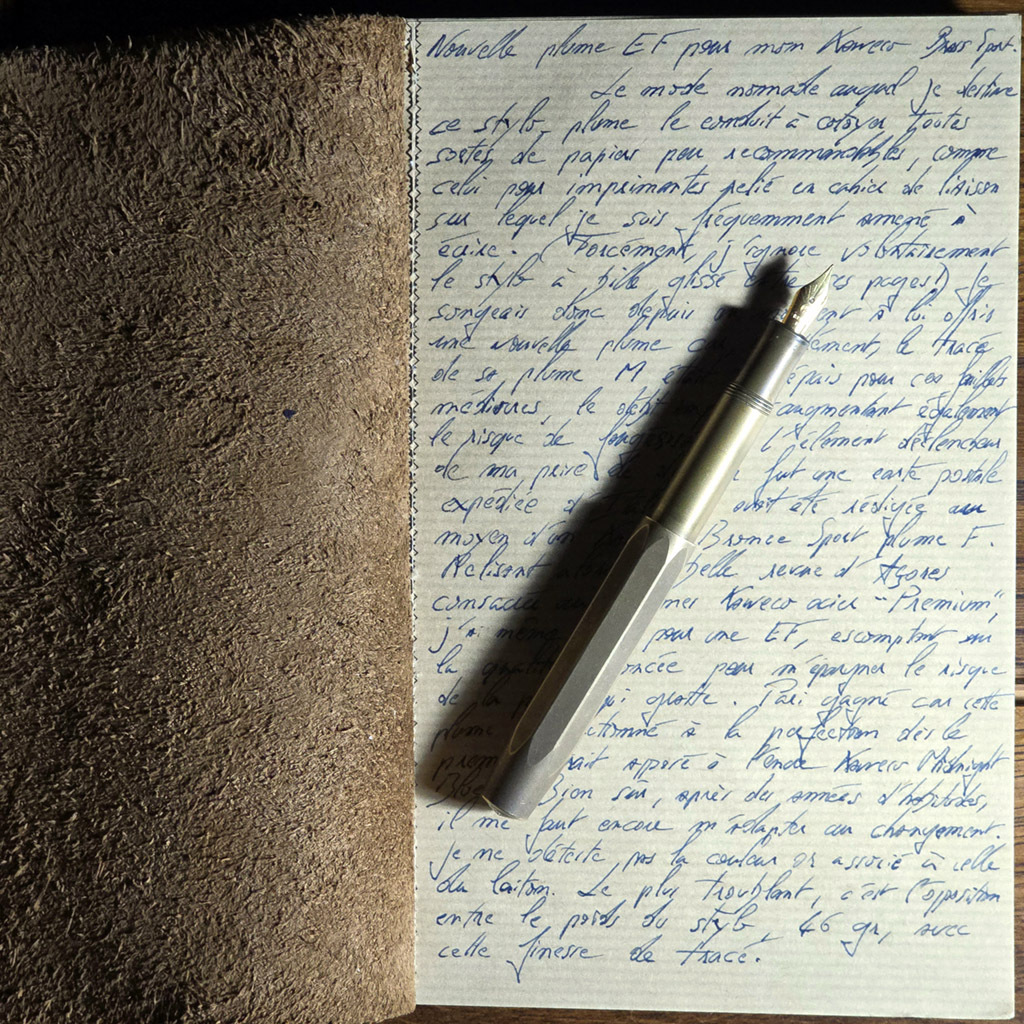 Nouvelle plume EF pour mon Kaweco Brass Sport.
Le mode nomade auquel je destine
ce stylo plume le conduit à cotoyer toutes
sortes de papiers peu recommandables, comme
celui pour imprimantes relié en cahier de liaison
sur lequel je suis fréquemment amené à
écrire. (Forcément, j'ignore volontairement
le stylo à bille glissé entre ses pages!) Je
songeais donc depuis un à lui offrir
une nouvelle plume car le tracé
de sa plume M était épais pour ces feuillets
médiocres, le augmentant également
le risque de L'élément déclencheur
de ma prise de fut une carte postale
expédiée avait été rédigée au
moyen d'un Bronze Sport plume F.
Relisant belle revue d'Açores
consacrée mes Kaweco acier "Premium",
j'ai même pour une EF, escomptant sur
la qualité pour m'épargner le risque
de la qui gratte. Pari gagné car cette
plume à la perfection dès le
prem à l'encre Kaweco Midnight
Blue Bien sûr, après des années d'habitudes,
il me faut encore m'adapter au changement.
Je ne déteste pas la couleur or associé à celle
du laiton. Le plus troublant, c'est l'opposition
entre le poids du stylo, 46 gr, avec
cette finesse de tracé.